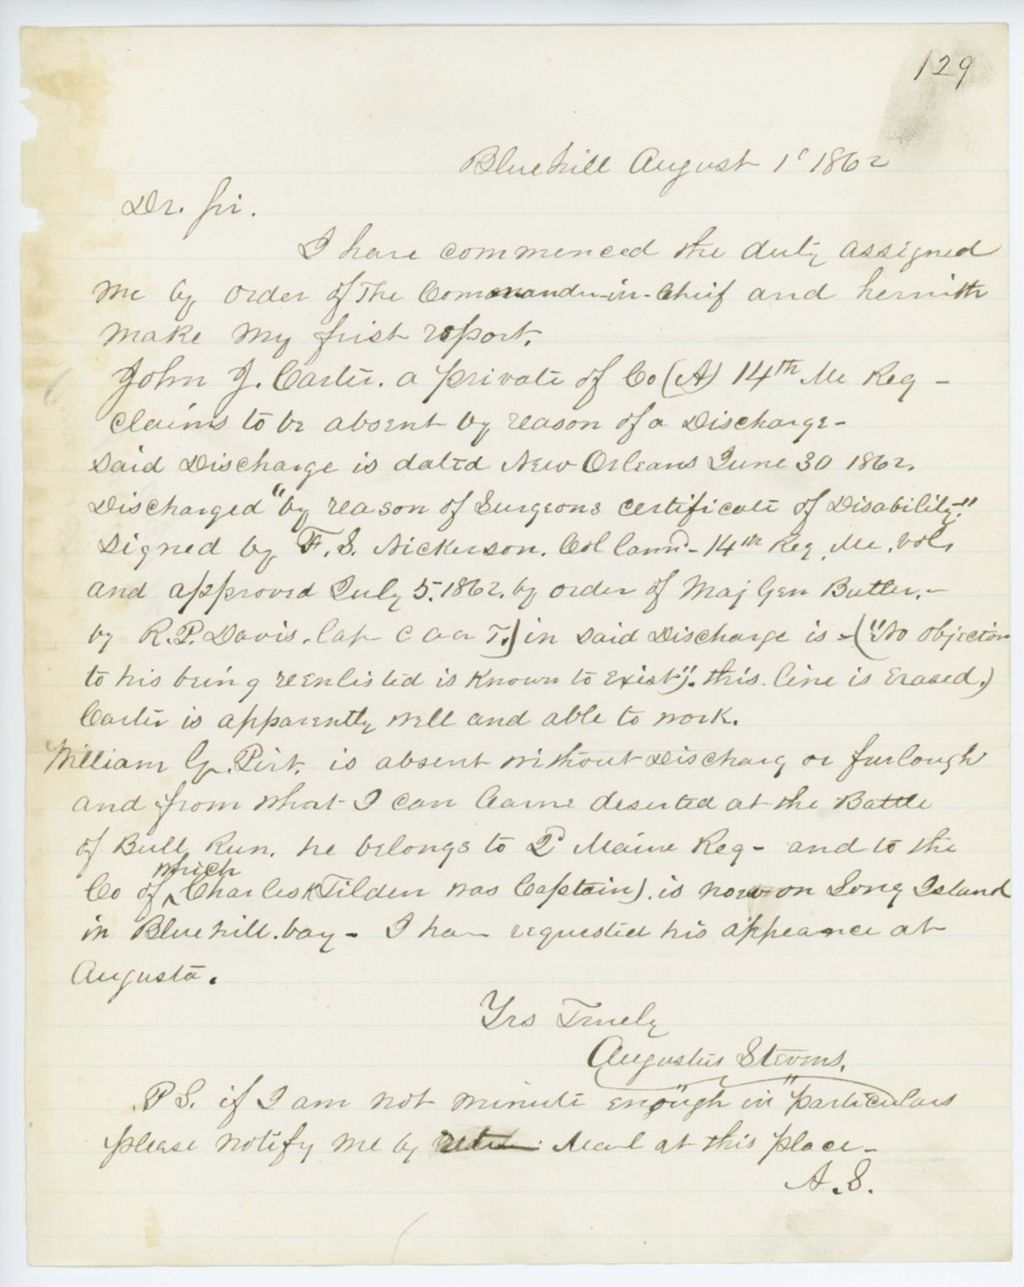 129
Bluehill August 1st 1862
Dr. Sir.
I have commenced the duty assigned
me by order of The Commander-in-Cheif and herwith
make my first report.
John J. Carter. a private of Co (A) 14th Me Reg -
claims to be absent by reason of a Discharge -
Said Discharge is dated New Orleans June 30 1862.
Discharged "by reason of Surgeons certificate of Disability."
Signed by F. S. Nickerson. Col Comd - 14th Reg. Me. Vols
and approved July 5. 1862. by order of Maj Gen Butler. -
by R. P. Davis. Cap & A. T.) in Said Discharge is - ("No objection
to his being reenlisted is known to exist". this line is Erased.)
Carter is apparently well and able to work.
William G. Pert. is absent without Discharg or furlough
and from what I can learn deserted at the Battle
of Bull Run. he belongs to 2d Maine Reg - and to the
which
Co of Charles Tilden was Captain). is now on Long Island
in Bluehill. bay - I have requested his appeance at
Augusta.
Yrs Truely
Augustus Stevens.
P S. if I am not minute enough in "particulars"
please notify me by Mail at this place -
A. S.